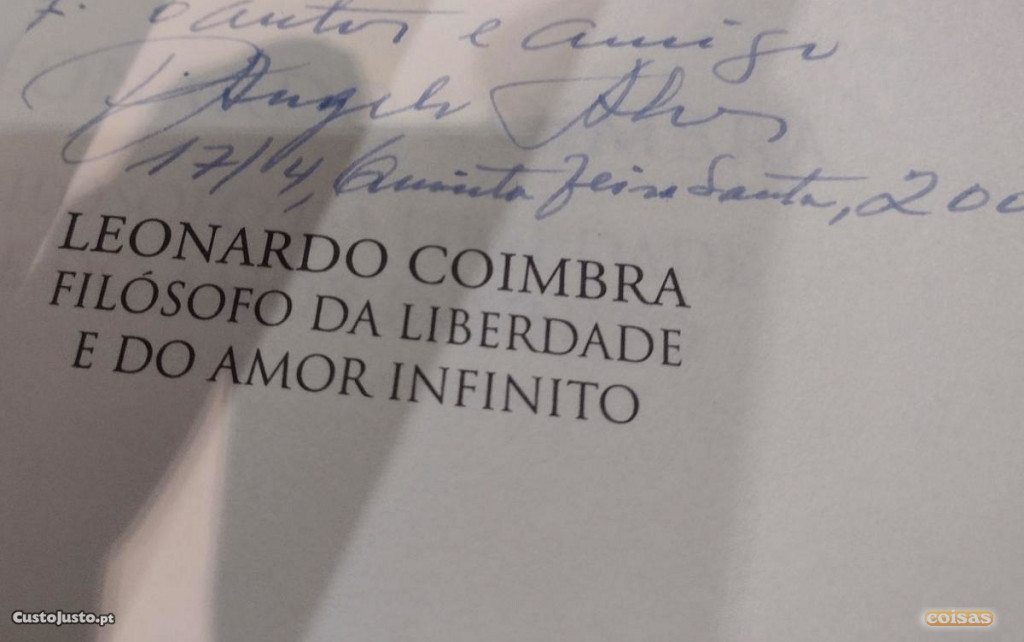 o autor e amigo
P. Ângelo Alves
17/4, Quinta feira Santa, 200
LEONARDO COIMBRA
FILÓSOFO DA LIBERDADE
E DO AMOR INFINITO
CustoJusto.pt
coisas